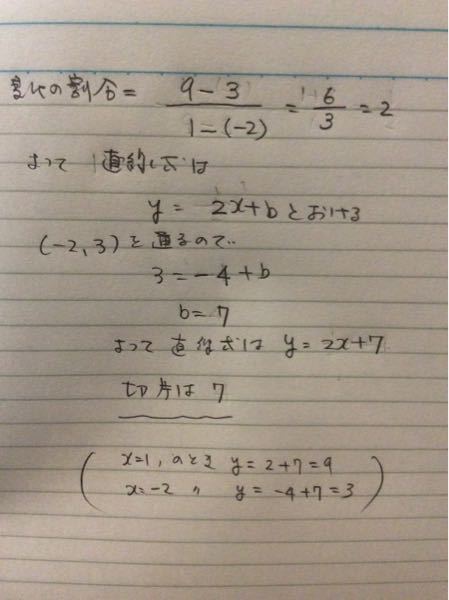 変化の割合 = \frac{9-3}{1-(-2)} = \frac{6}{3} = 2
よって 直線の式は
y = 2x+b とおける
(-2, 3) を通るので..
3 = -4+b
b = 7
よって 直線の式は y = 2x+7
切片は 7
x=1, のとき y = 2+7 = 9
x=-2 〃 y = -4+7 = 3